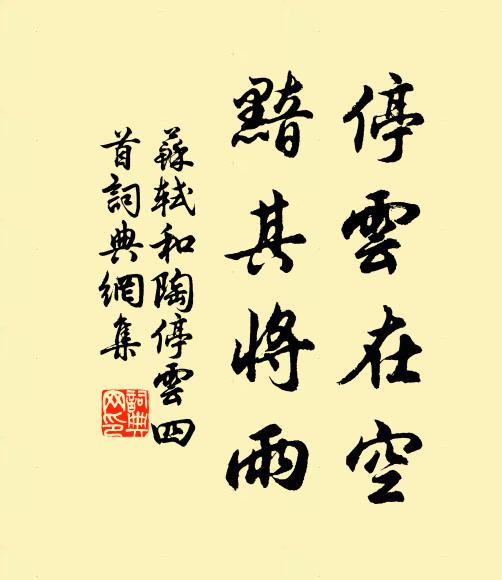 停雲在空
黯其將雨
蘇軾和陶停雲四
首詞典網集
詞典
网印